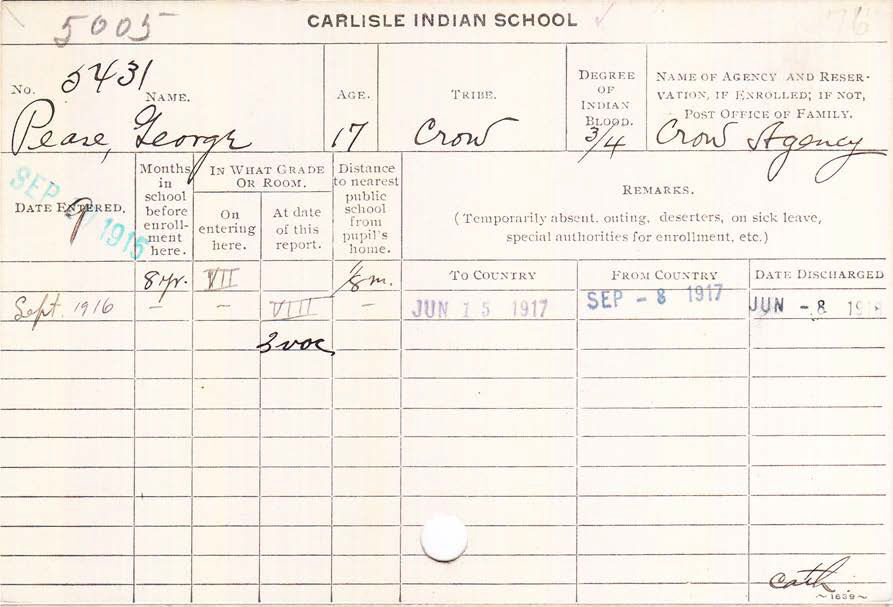 5005
CARLISLE INDIAN SCHOOL
76
No. 5431
NAME.
Pease, George
AGE.
17
TRIBE.
Crow
DEGREE
OF
INDIAN
BLOOD.
3/4
NAME OF AGENCY AND RESER-
VATION, IF ENROLLED; IF NOT,
POST OFFICE OF FAMILY.
Crow Agency
DATE ENTERED.
SEP 1915
9
Months
in
school
before
enroll-
ment
here.
IN WHAT GRADE
OR ROOM.
On
entering
here.
At date
of this
report.
Distance
to nearest
public
school
from
pupil's
home.
REMARKS.
(Temporarily absent, outing, deserters, on sick leave,
special authorities for enrollment, etc.)
TO COUNTRY
FROM COUNTRY
DATE DISCHARGED
8 yr. VII 1/8 m.
Sept. 1916 – – VIII – JUN 15 1917 SEP - 8 1917 JUN - 8
3 voc
cath
~1639~